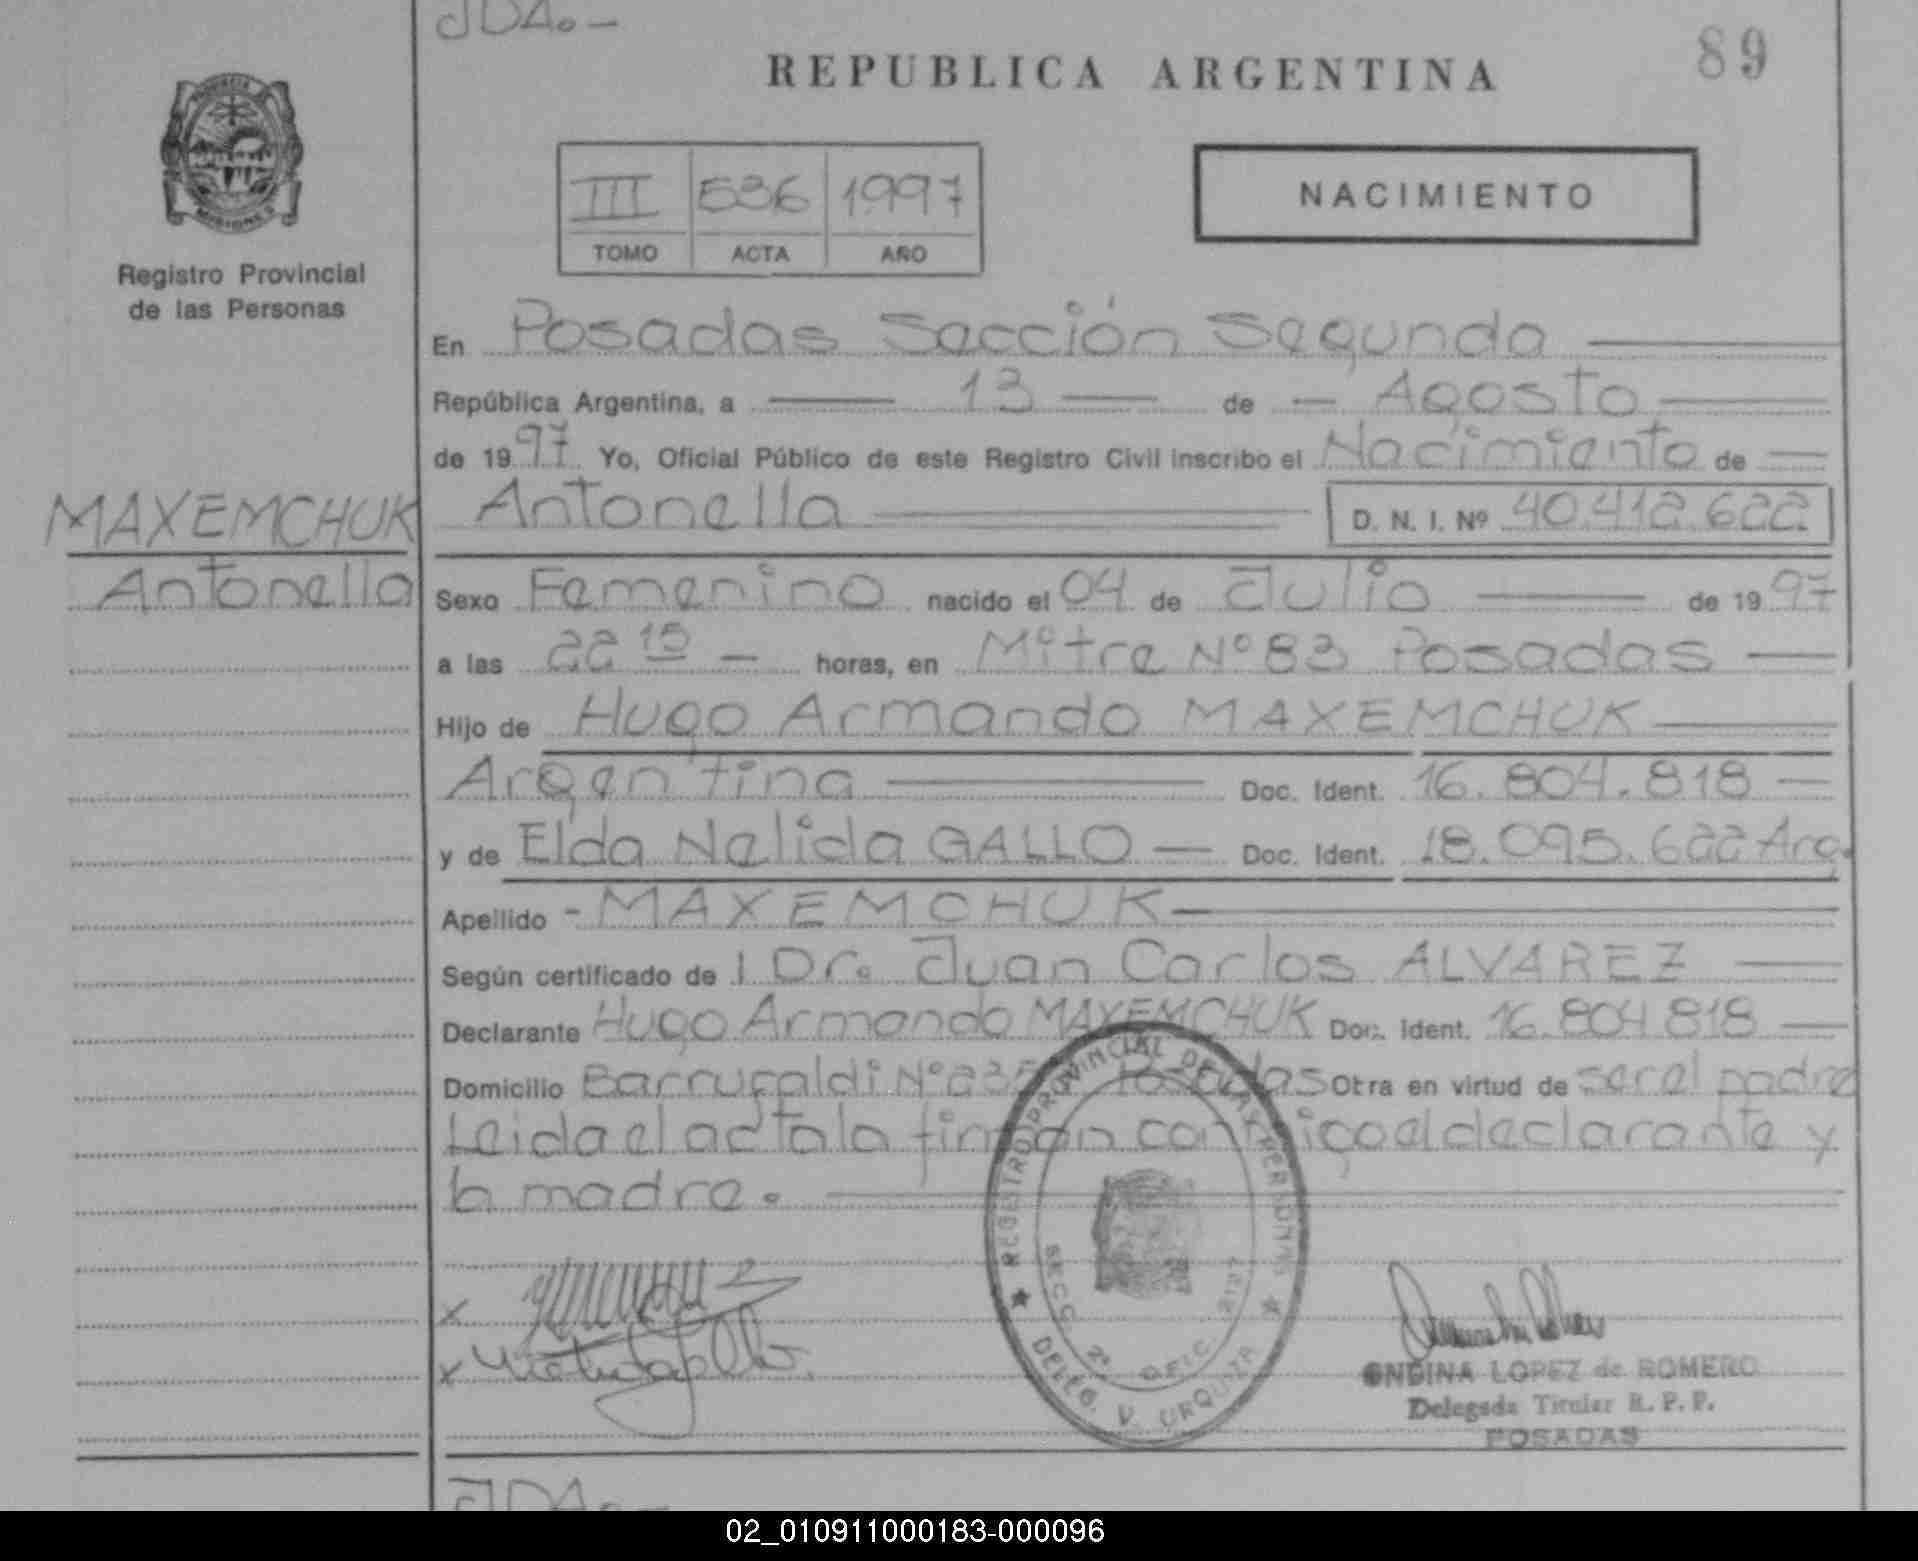 JDA.-
REPUBLICA ARGENTINA
89
PROVINCIA
MISIONES
Registro Provincial
de las Personas
III 536 1997
TOMO ACTA AÑO
NACIMIENTO
En Posadas Sección Segunda
República Argentina, a 13 de Agosto
de 1997. Yo, Oficial Público de este Registro Civil inscribo el Nacimiento de
MAXEMCHUK
Antonella
Antonella D. N. I. Nº 40.412.622
Sexo Femenino nacido el 04 de Julio de 1997
a las 22 15 horas, en Mitre Nº 83 Posadas
Hijo de Hugo Armando MAXEMCHUK
Argentina Doc. Ident. 16.804.818
y de Elda Nelida GALLO Doc. Ident. 18.095.622 Arg.
Apellido - MAXEMCHUK
Según certificado de l Dr. Juan Carlos ALVAREZ
Declarante Hugo Armando MAXEMCHUK Doc. Ident. 16.804 818
Domicilio Barrufaldi Nº Posadas Otra en virtud de ser el padre
Leida el acta la firman conmigo el declarante y
la madre.
REGISTRO PROVINCIAL DE LAS PERSONAS
SECC. 2ª OFIC. 2127
DELEG. V. URQUIZA
x
x
ONDINA LOPEZ de ROMERO
Delegada Titular R. P. P.
POSADAS
JDA.-
02_010911000183-000096